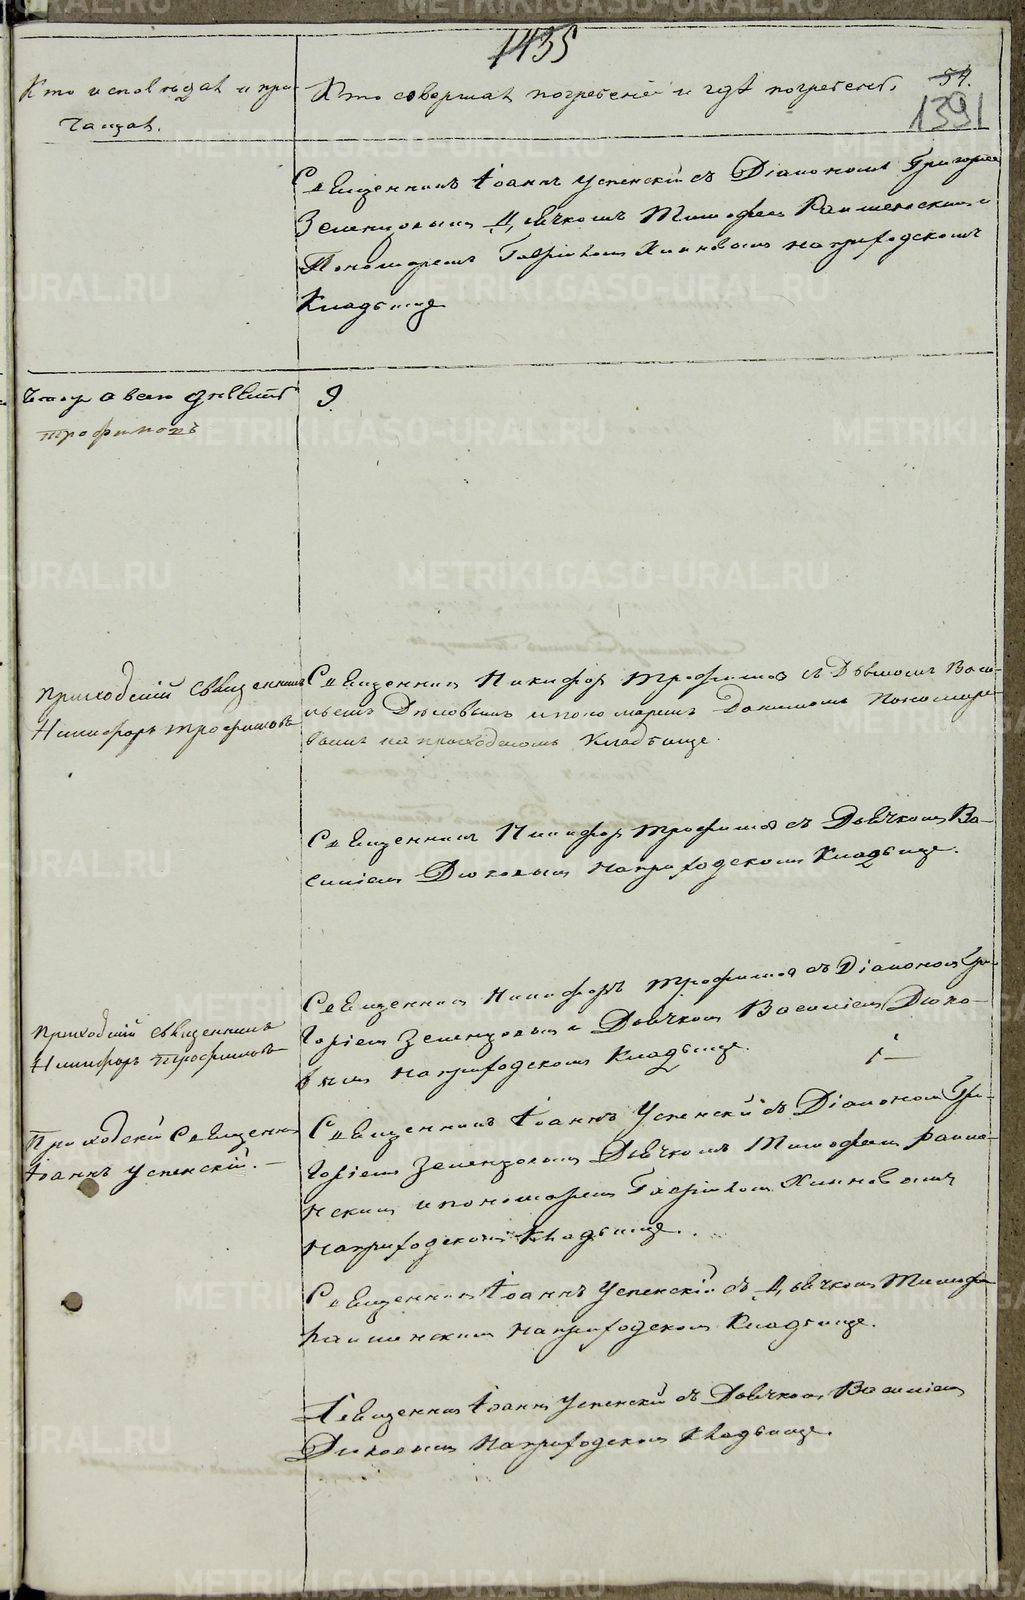 1435
Кто исповѣдалъ и прі-
чащалъ.
Кто совершалъ погребеніе и гдѣ погребенъ.
54.
1391
Священникъ Іоаннъ Успенскій съ Діакономъ Григоріемъ
Земенцовымъ Дьячкомъ Тимофеемъ
Пономаремъ Гавріиломъ на приходскомъ
Кладбище
9
Трофимовъ
приходскій священникъ
Никифоръ Трофимовъ
Священникъ Никифоръ Трофимовъ съ Дьячкомъ Васи-
льемъ и пономаремъ
на приходскомъ Кладбище.
Священникъ Никифоръ Трофимовъ съ Дьячкомъ Ва-
силіемъ Дюковымъ на приходскомъ Кладбище.
приходскій священникъ
Никифоръ Трофимовъ
Священникъ Никифоръ Трофимовъ съ Діакономъ Гри-
горіемъ Земенцовымъ и Дьячкомъ Василіемъ Дюко-
вымъ на приходскомъ Кладбище.
Приходскій Священникъ
Іоаннъ Успенскій.
Священникъ Іоаннъ Успенскій съ Діакономъ Гри-
горіемъ Земенцовымъ Дьячкомъ Тимофеемъ
и пономаремъ Гавріиломъ
на приходскомъ Кладбище.
Священникъ Іоаннъ Успенскій съ Дьячкомъ Тимофеемъ
на приходскомъ Кладбище.
Священникъ Іоаннъ Успенскій съ Дьячкомъ Василіемъ
Дюковымъ на приходскомъ Кладбище.
METRIKI.GASO-URAL.RU